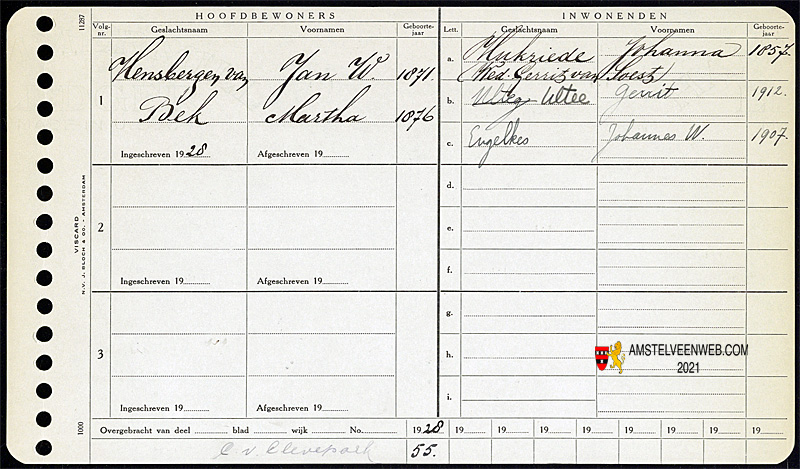 11287
HOOFDBEWONERS INWONENDEN
Volg-nr. Geslachtsnaam Voornamen Geboorte-jaar Lett. Geslachtsnaam Voornamen Geboorte-jaar
1 Hensbergen, van Jan W. 1871
Bek Martha 1876
Ingeschreven 1928 Afgeschreven 19
a. Johanna 1857.
Wed. Gerrit van Soest
b. Ultee Gerrit 1912.
c. Engelkes Johannes W. 1907.
d.
2
e.
f.
Ingeschreven 19 Afgeschreven 19
g.
3
h.
i.
Ingeschreven 19 Afgeschreven 19
AMSTELVEENWEB.COM
2021
VISCARD
N.V. J. BLOCH & Co. - AMSTERDAM
1000
Overgebracht van deel blad wijk No. 1928 19 19 19 19 19 19 19 19
55.